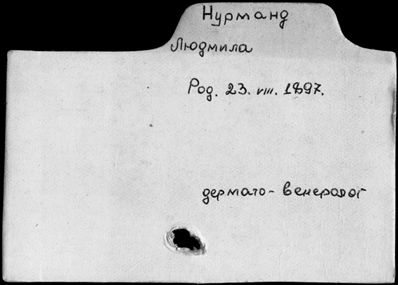 Нурманд
Людмила
Род. 23. VIII. 1897.
дермато-венеролог